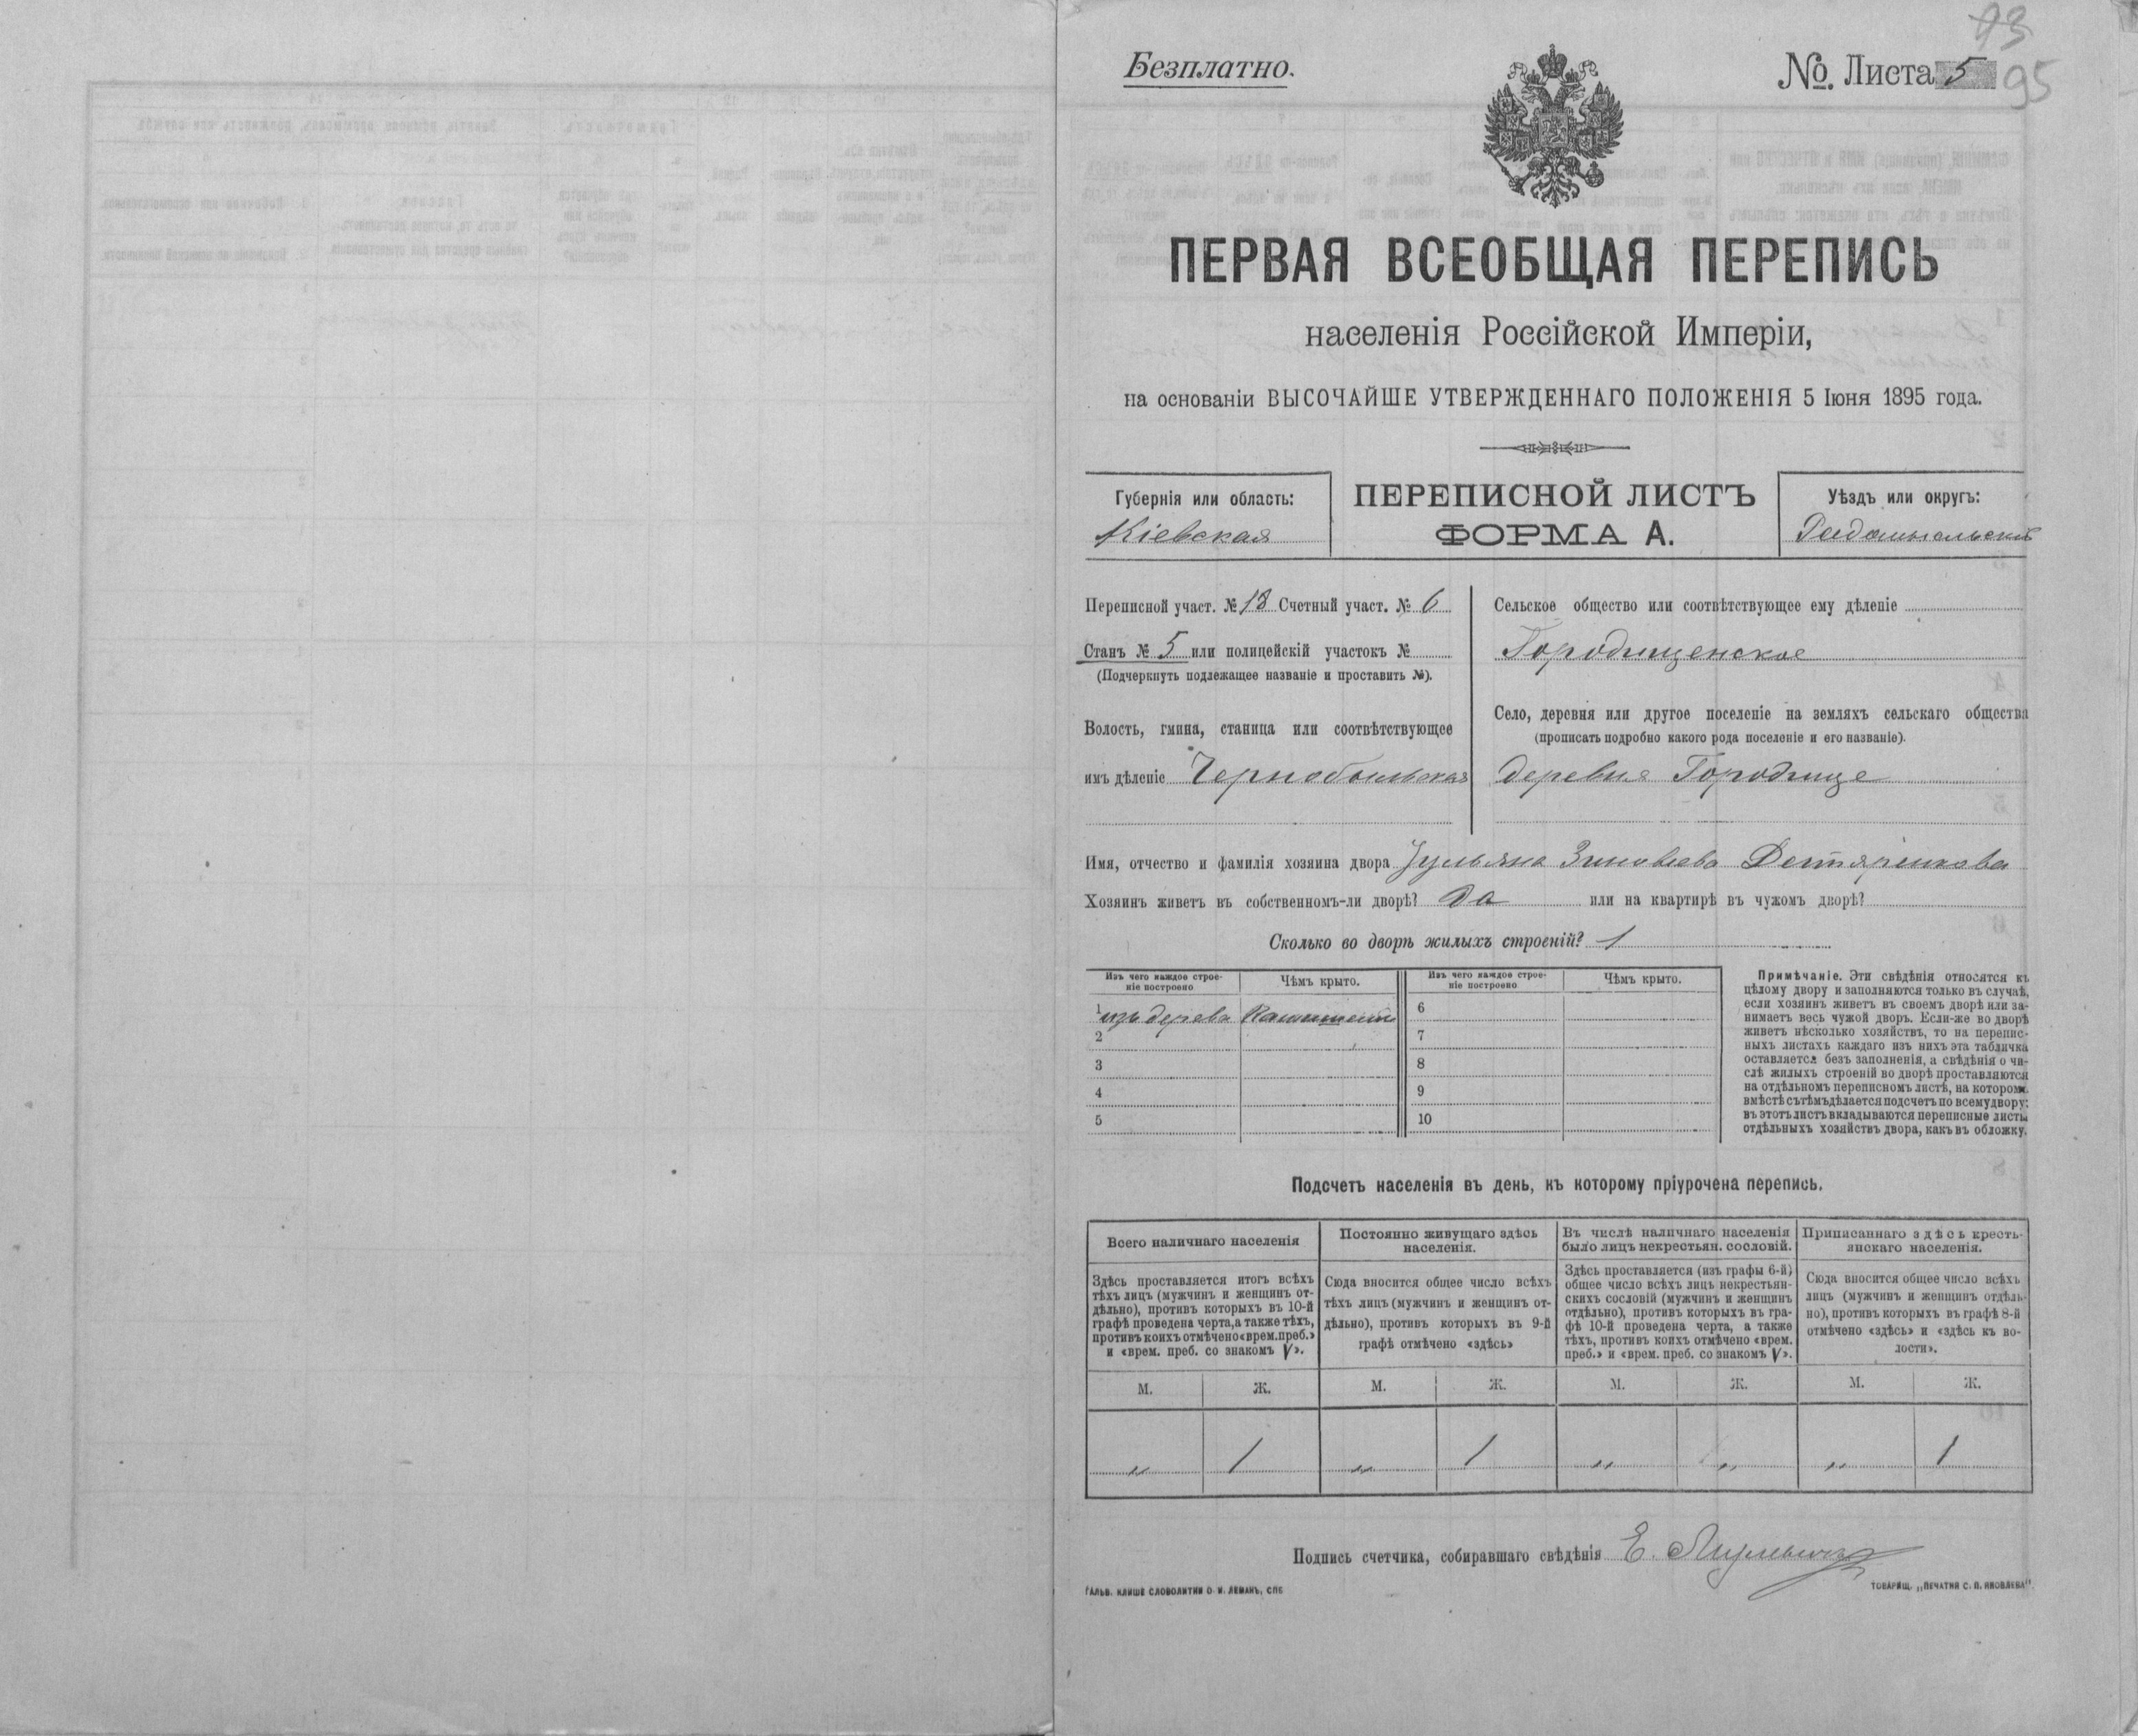 93
Безплатно.
№. Листа 5
95
ПЕРВАЯ ВСЕОБЩАЯ ПЕРЕПИСЬ
населенія Россійской Имперіи,
на основаніи ВЫСОЧАЙШЕ УТВЕРЖДЕННАГО ПОЛОЖЕНІЯ 5 Іюня 1895 года.
Губернія или область:
Кіевская
ПЕРЕПИСНОЙ ЛИСТЪ
ФОРМА А.
Уѣздъ или округъ:
Радомысльскій
Переписной участ. № 18 Счетный участ. № 6
Станъ № 5 или полицейскій участокъ №
(Подчеркнуть подлежащее названіе и проставить №).
Волость, гмина, станица или соотвѣтствующее
имъ дѣленіе Чернобыльская
Сельское общество или соотвѣтствующее ему дѣленіе
Городищенское
Село, деревня или другое поселеніе на земляхъ сельскаго общества
(прописать подробно какого рода поселеніе и его названіе).
деревня Городище
Имя, отчество и фамилія хозяина двора Ульяна Зиновіева Дегтяренкова
Хозяинъ живетъ въ собственномъ-ли дворѣ? да или на квартирѣ въ чужомъ дворѣ?
Сколько во дворѣ жилыхъ строеній? 1
Изъ чего каждое строе-
ніе построено
Чѣмъ крыто.
Изъ чего каждое строе-
ніе построено
Чѣмъ крыто.
1 изъ дерева
2
3
4
5
6
7
8
9
10
Примѣчаніе. Эти свѣдѣнія относятся къ
цѣлому двору и заполняются только въ случаѣ,
если хозяинъ живетъ въ своемъ дворѣ или за-
нимаетъ весь чужой дворъ. Если-же во дворѣ
живетъ нѣсколько хозяйствъ, то на перепис-
ныхъ листахъ каждаго изъ нихъ эта табличка
оставляется безъ заполненія, а свѣдѣнія о чи-
слѣ жилыхъ строеній во дворѣ проставляются
на отдѣльномъ переписномъ листѣ, на которомъ
вмѣстѣ съ тѣмъ дѣлается подсчетъ по всему двору;
въ этотъ листъ вкладываются переписные листы
отдѣльныхъ хозяйствъ двора, какъ въ обложку.
Подсчетъ населенія въ день, къ которому пріурочена перепись.
Всего наличнаго населенія
Здѣсь проставляется итогъ всѣхъ
тѣхъ лицъ (мужчинъ и женщинъ от-
дѣльно), противъ которыхъ въ 10-й
графѣ проведена черта, а также тѣхъ,
противъ коихъ отмѣчено «врем. преб.»
и «врем. преб. со знакомъ V».
Постоянно живущаго здѣсь
населенія.
Сюда вносится общее число всѣхъ
тѣхъ лицъ (мужчинъ и женщинъ от-
дѣльно), противъ которыхъ въ 9-й
графѣ отмѣчено «здѣсь»
Въ числѣ наличнаго населенія
было лицъ некрестьян. сословій.
Здѣсь проставляется (изъ графы 6-й)
общее число всѣхъ лицъ некрестьян-
скихъ сословій (мужчинъ и женщинъ
отдѣльно), противъ которыхъ въ гра-
фѣ 10-й проведена черта, а также
тѣхъ, противъ коихъ отмѣчено «врем.
преб.» и «врем. преб. со знакомъ V».
Приписаннаго здѣсь кресть-
янскаго населенія.
Сюда вносится общее число всѣхъ
лицъ (мужчинъ и женщинъ отдѣль-
но), противъ которыхъ въ графѣ 8-й
отмѣчено «здѣсь» и «здѣсь къ во-
лости».
М. Ж. М. Ж. М. Ж. М. Ж.
„ 1 „ 1 „ „ „ 1
Подпись счетчика, собиравшаго свѣдѣнія Е.
ГАЛЬВ. КЛИШЕ СЛОВОЛИТНИ О. И. ЛЕМАНЪ, СПБ
ТОВАРИЩ. „ПЕЧАТНЯ С. П. ЯКОВЛЕВА".